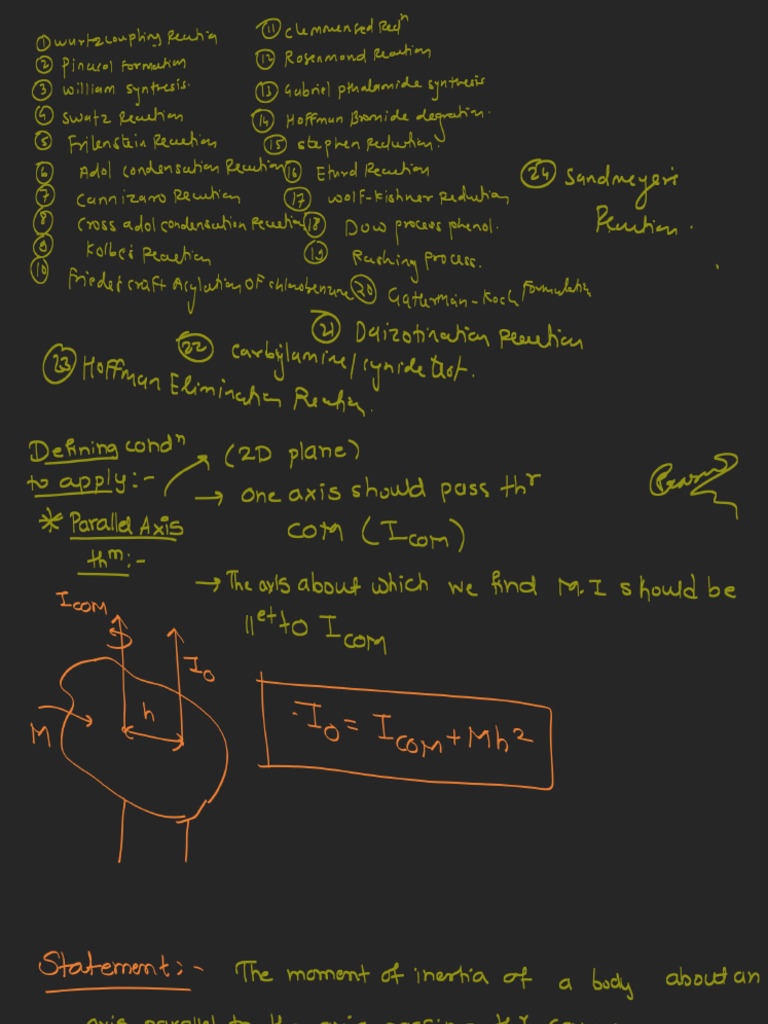 ① Wurtz coupling Reaction
② Pinacol formation
③ William synthesis.
④ Swatz Reaction
⑤ Frilenstein Reaction
⑥ Adol condensation Reaction
⑦ Cannizaro Reaction
⑧ Cross adol condensation Reaction
⑨ Kolbe's Reaction
⑩ Friedet craft Acylation OF chlorobenzene
⑪ Clemmensed Redⁿ
⑫ Rosenmond Reaction
⑬ Gabriel pthalamide synthesis
⑭ Hoffman Bromide degration.
⑮ Stephen Reduction.
⑯ Etard Reaction
⑰ Wolf-Kishner Reduction
⑱ Dow process phenol.
⑲ Rashing Process.
⑳ Gaterman-Koch Formulation
㉑ Daizotination Reaction
㉒ Carbylamine/cynide test.
㉓ Hoffman Elimination Reaction.
㉔ Sandmeyer's
Reaction.
Defining condⁿ
to apply:-
* Parallel Axis
thᵐ:-
(2D plane)
→ one axis should pass thʳ
COM (I_COM)
→ The axis about which we find M.I should be
||ᵉˡ to I_COM
I_COM
I_O
h
M
I_O = I_COM + Mh²
Statement:- The moment of inertia of a body about an
axis parallel to the axis passing thʳ